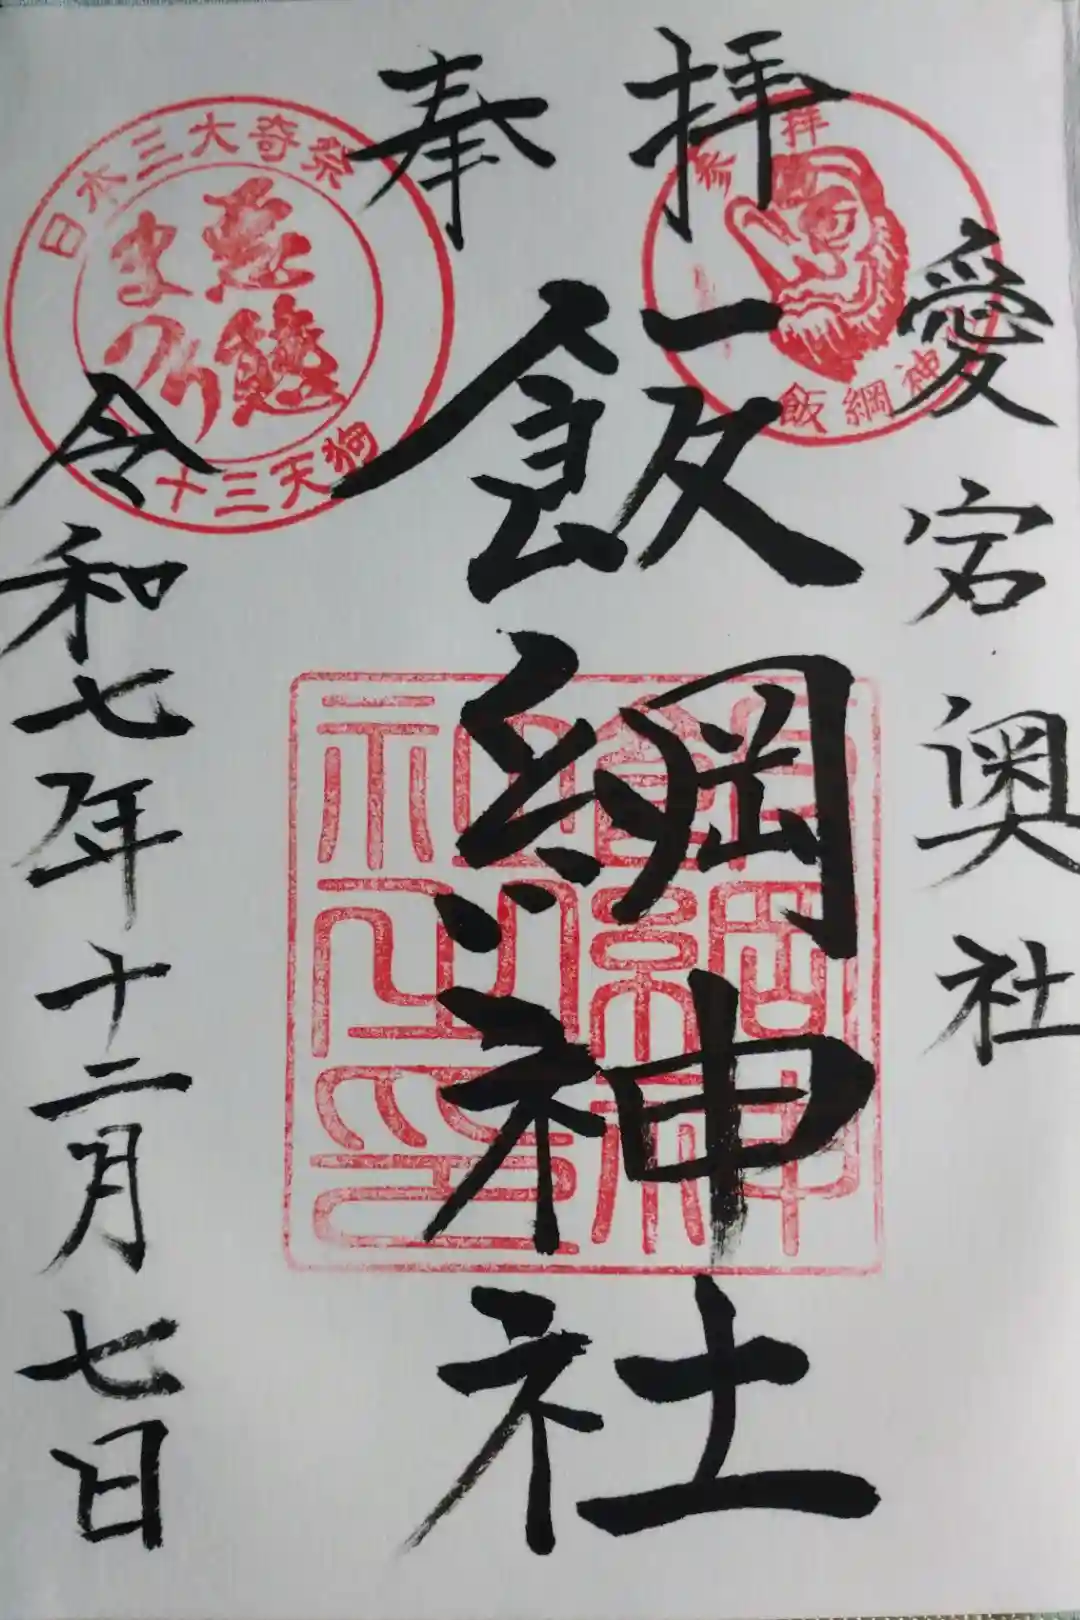 愛宕奥社
奉拝
飯綱神社
令和七年十二月七日
日本三大奇祭
悪態
まつり
十三天狗
参拝
飯綱神
飯綱神社之印